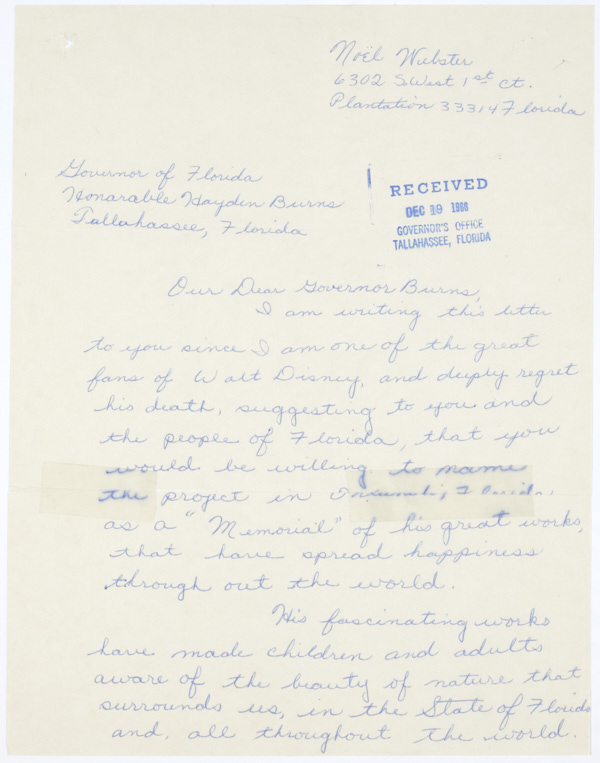 Noël Webster
6302 S West 1st Ct.
Plantation 33314 Florida
Governor of Florida
Honarable Hayden Burns
Tallahassee, Florida
RECEIVED
DEC 19 1966
GOVERNOR'S OFFICE
TALLAHASSEE, FLORIDA
Our Dear Governor Burns,
I am writing this letter
to you since I am one of the great
fans of Walt Disney, and deeply regret
his death, suggesting to you and
the people of Florida, that you
would be willing to name
the project in Florida,
as a "Memorial" of his great works,
that have spread happiness
through out the world.
His fascinating works
have made children and adults
aware of the beauty of nature that
surrounds us, in the State of Florida
and, all throughout the world.